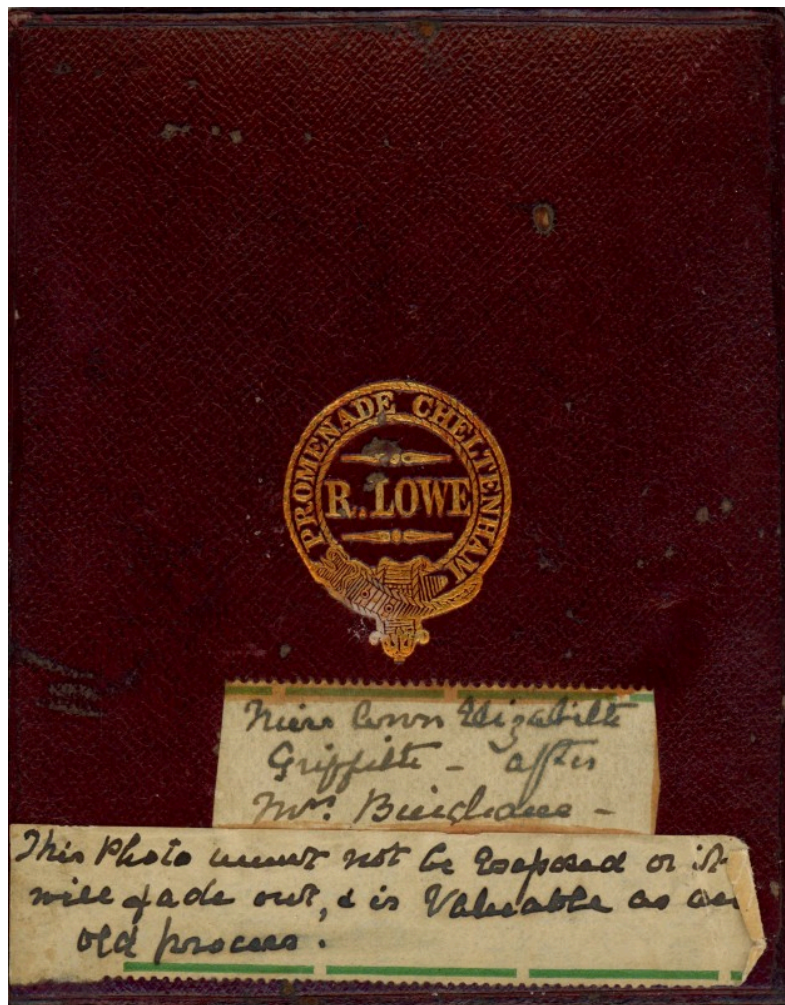 PROMENADE CHELTENHAM
R. LOWE
Miss Ann Elizabeth
Griffith - after
Mrs. Bingham -
This Photo must not be Exposed or it
will fade out, & is Valuable as an
old process.